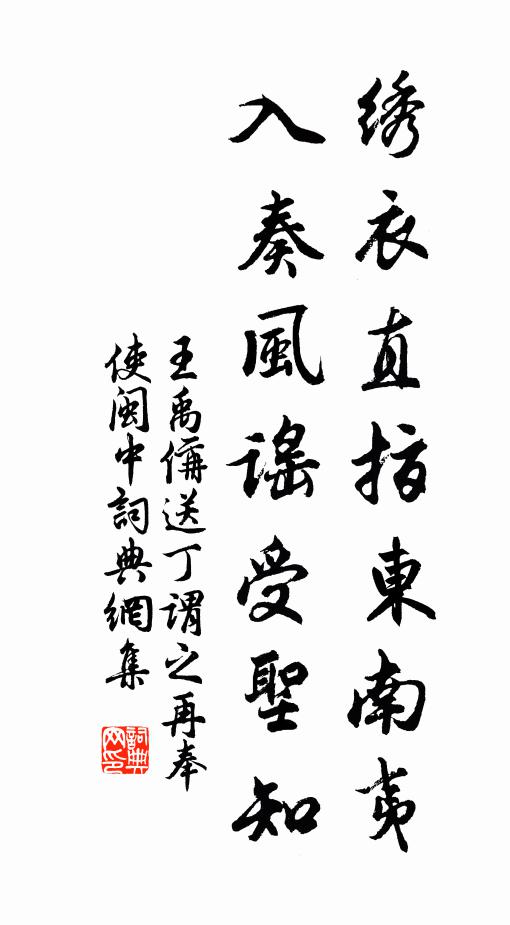 绣衣直指東南夷
入奏風謠受聖知
王禹偁送丁謂之再奉
使閩中詞典網集
詞典网印